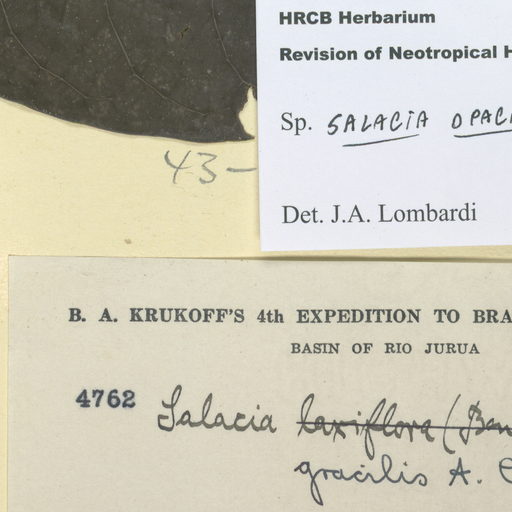 HRCB Herbarium
Revision of Neotropical H
Sp. SALACIA OPAC
43-
Det. J.A. Lombardi
B. A. KRUKOFF'S 4th EXPEDITION TO BRA
BASIN OF RIO JURUA
4762 Salacia laxiflora (Ben
gracilis A. C